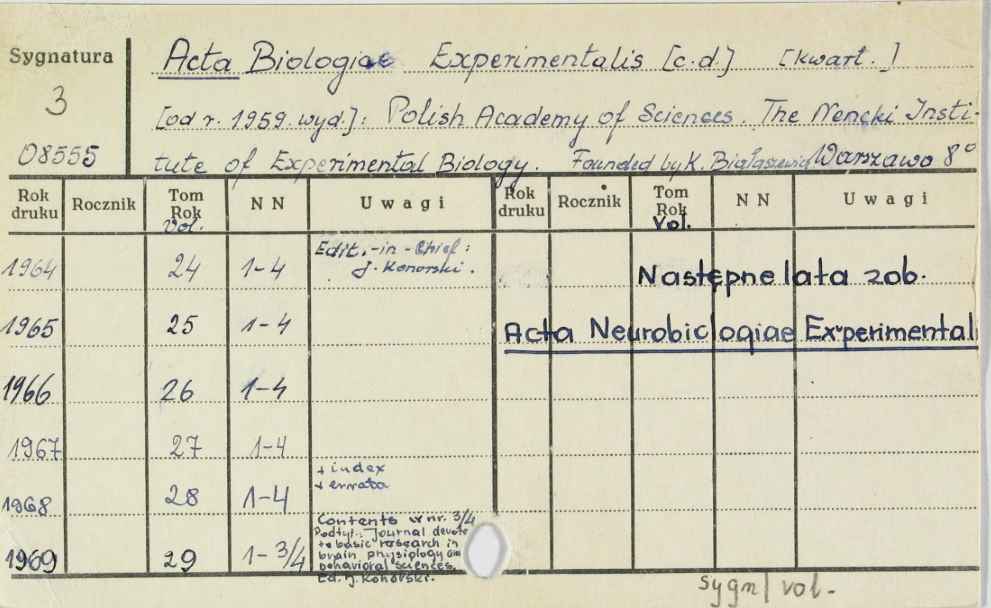 Sygnatura
3
08555
Acta Biologiae Experimentalis [c.d.] [kwart.]
[od r. 1959. wyd.]: Polish Academy of Sciences. The Nencki Insti-
tute of Experimental Biology. Founded by K. Białaszewicz Warszawa 8°
Rok druku Rocznik Tom Rok Vol. NN Uwagi Rok druku Rocznik Tom Rok Vol. NN Uwagi
1964 24 1-4 Edit.-in-Chief: J. Konorski.
Następne lata zob.
1965 25 1-4
Acta Neurobiologiae Experimental
1966 26 1-4
1967 27 1-4
+ index
+ errata
1968 28 1-4
Contents w nr. 3/4
Podtyt.: Journal devote
to basic research in
brain physiology and
behavioral sciences.
Ed. J. Konorski.
1969 29 1-3/4
sygn/ vol.